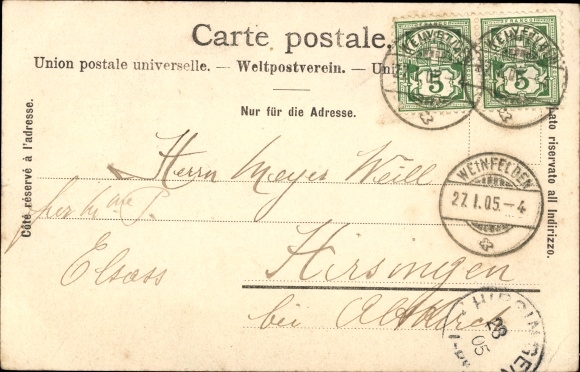 Carte postale.
Union postale universelle. — Weltpostverein. — Uni
Nur für die Adresse.
Côté réservé à l'adresse.
Lato riservato all Indirizzo.
HELVETIA
FRANCO
5
FRANCO
5
WEINFELDEN
27.I.05.-4
Herrn Meyer Weill
Elsass
Hirsingen
bei Altkirch
HIRSINGEN
28
05